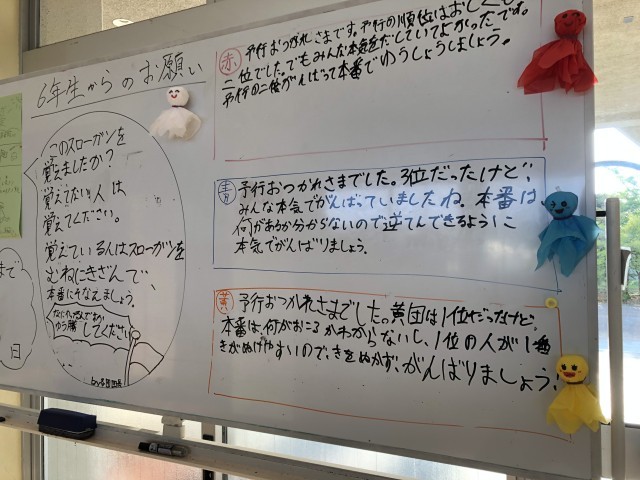 6年生からのお願い
このスローガンを
覚えましたか?
覚えてない人は
覚えてください。
覚えている人はスローガンを
むねにきざんで、
本番にそなえましょう。
ゆう勝してください
日
赤 予行おつかれさまです。予行の順位はおしくも
二位でした。でもみんな本気をだしていてよかったです。
予行の二位がんばって本番でゆうしょうしましょう。
青 予行おつかれさまでした。3位だったけど、
みんな本気でがんばっていましたね。本番は
何があるか分からないので逆てんできるように
本気でがんばりましょう。
黄 予行おつかれさまでした。黄団は1位だったけど、
本番は、何がおこるかわからないし、1位の人が1番
きがぬけやすいので、きをぬかず、がんばりましょう。